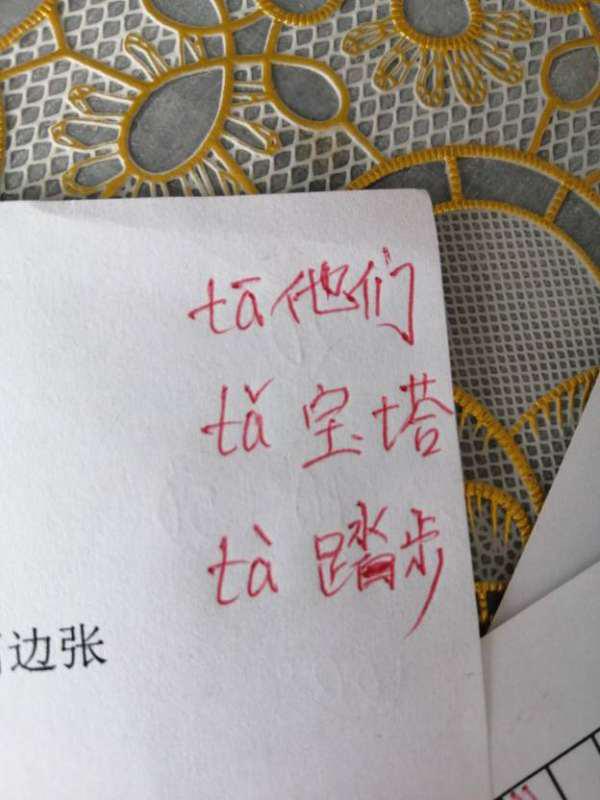 tā 他们
tǎ 宝塔
tà 踏步
边张